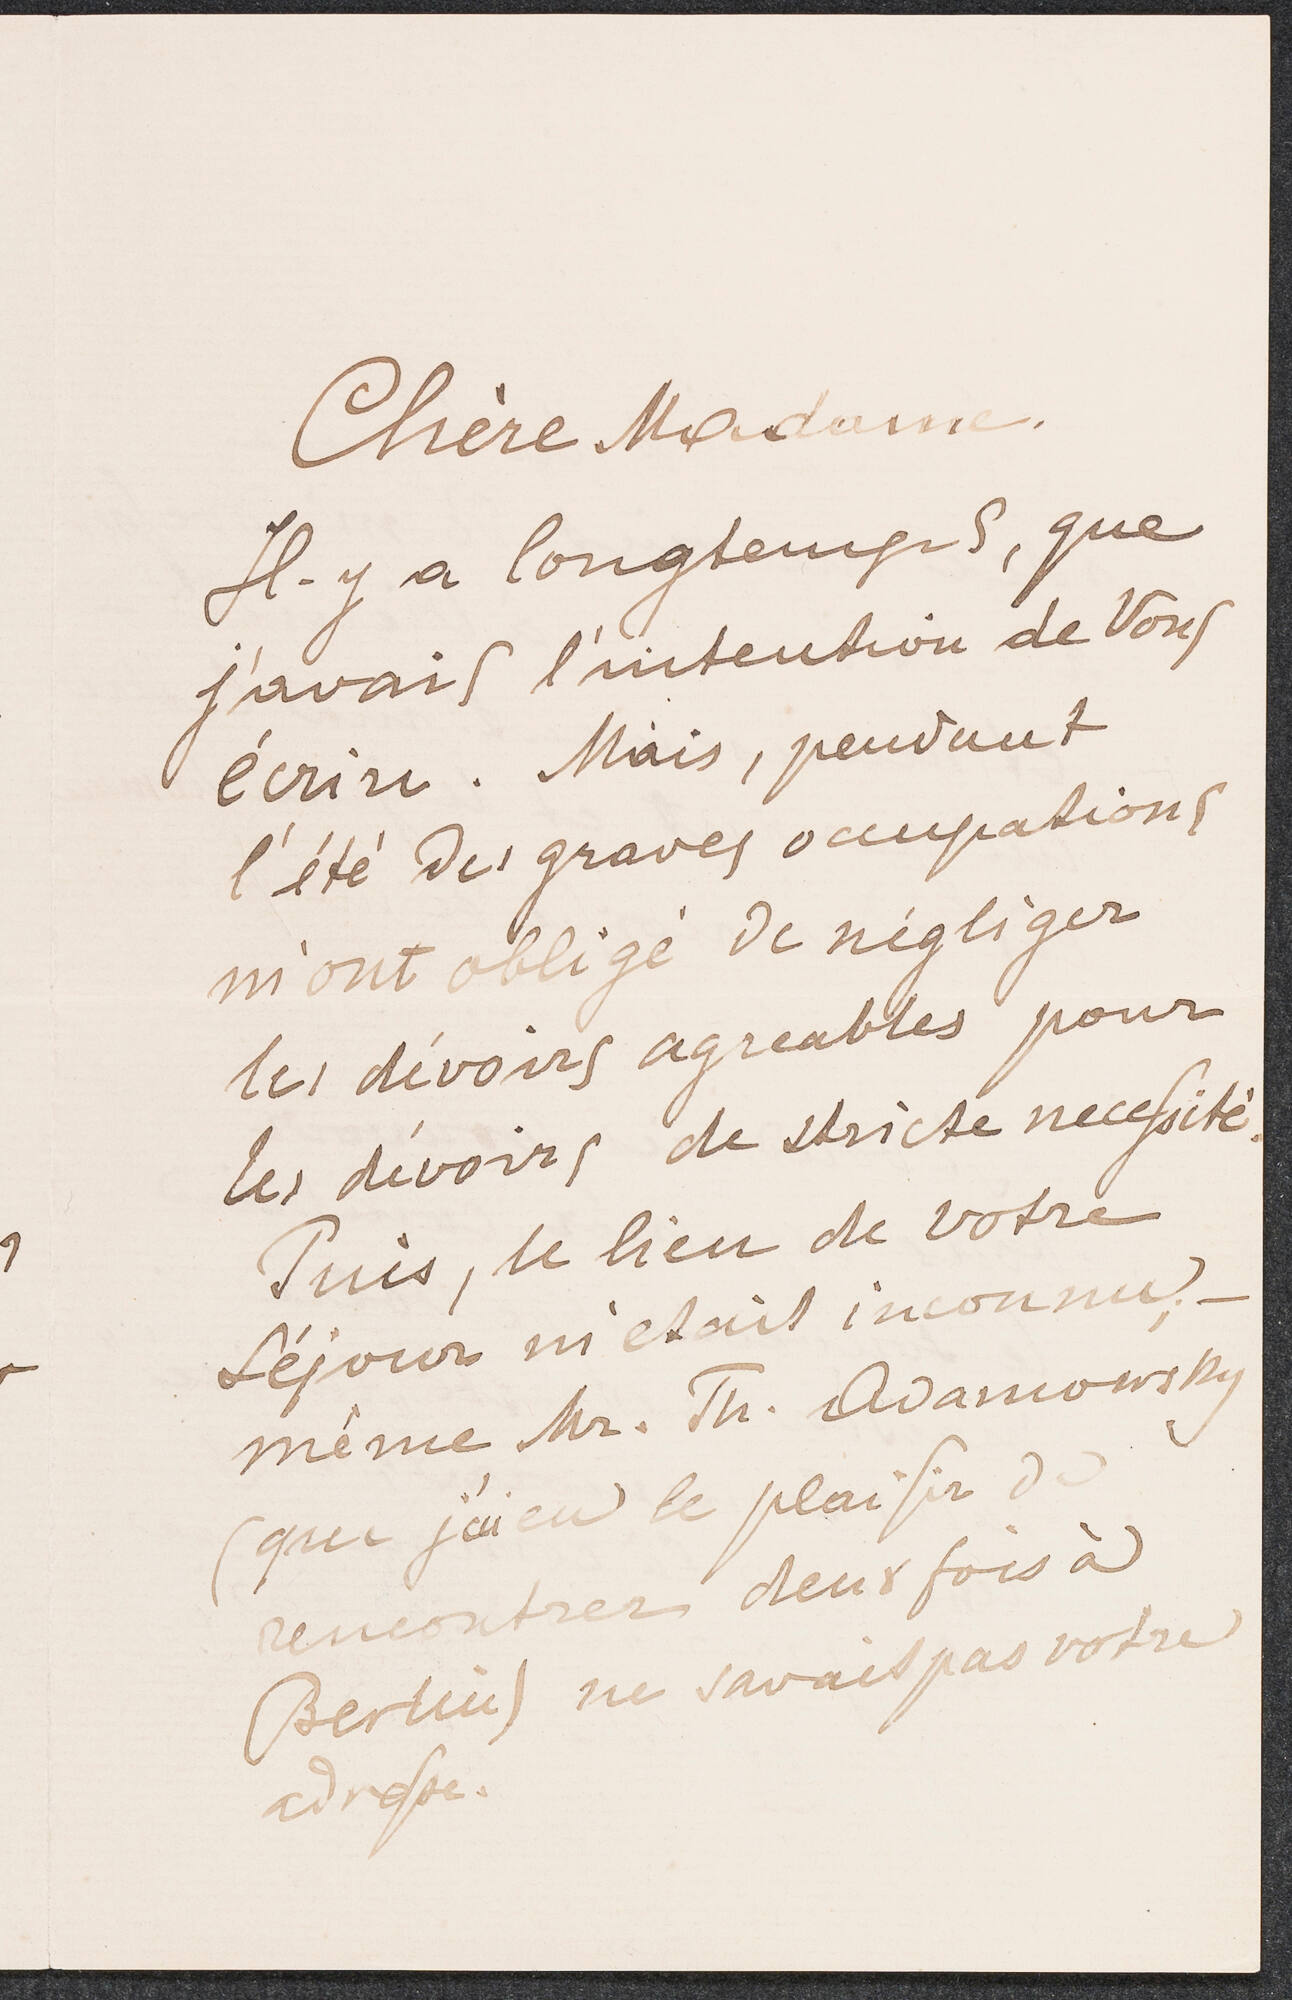 Chère Madame.
Il-y a longtemps, que
j'avais l'intention de Vous
écrire. Mais, pendant
l'été des graves occupations
m'ont obligé de négliger
les dévoirs agreables pour
les dévoirs de stricte necessité.
Puis, le lieu de votre
séjour m'etait inconnu; –
même Mr. Th. Adamowsky
(que j'ai eu le plaisir de
rencontrer deux fois à
Berlin) ne savait pas votre
adresse.